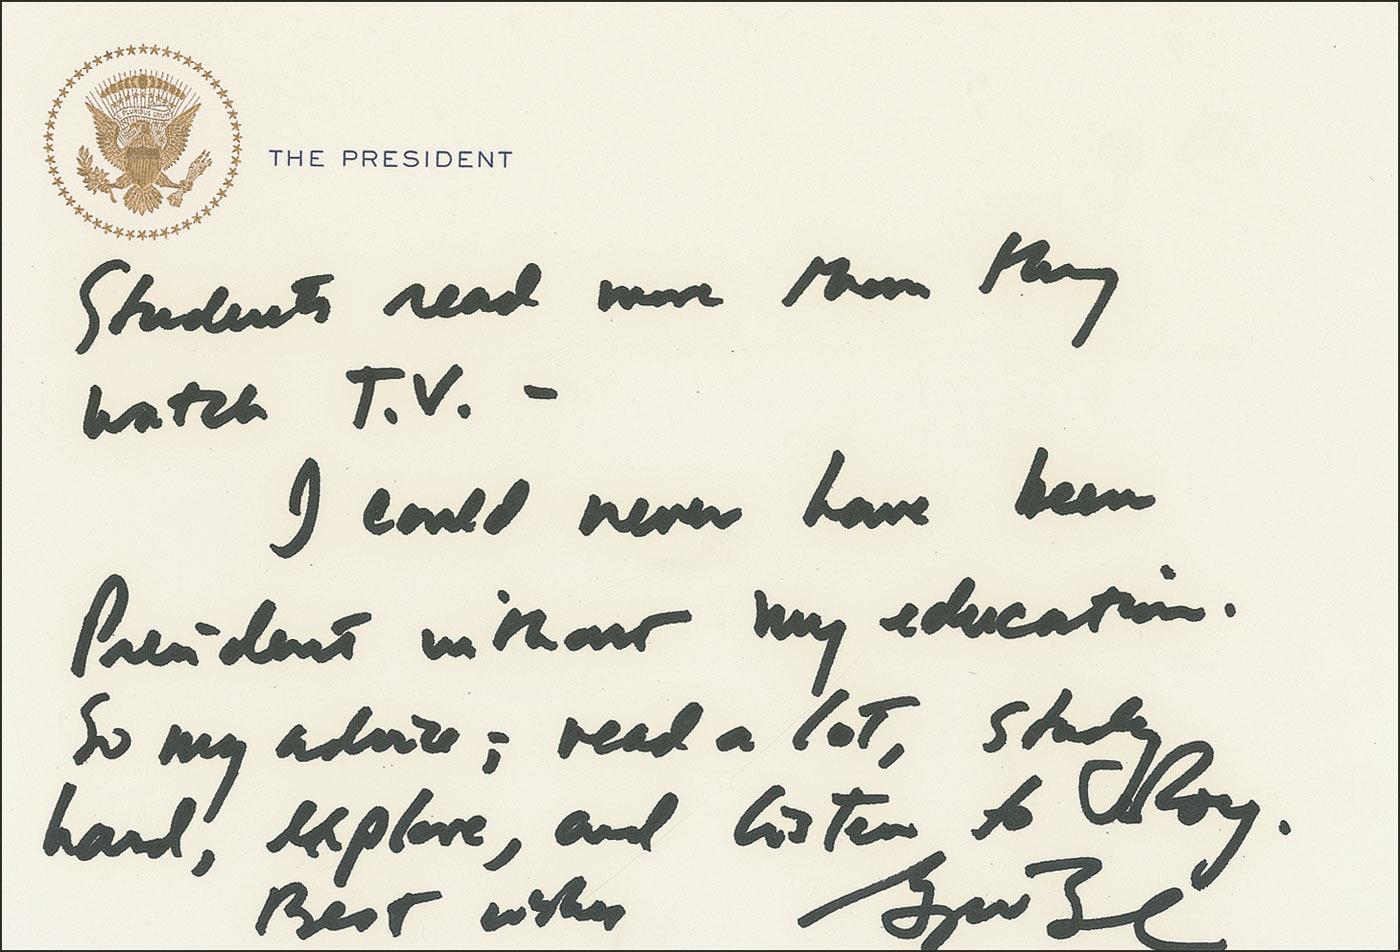 E PLURIBUS UNUM
THE PRESIDENT
Students read more than they
watch T.V. -
I could never have been
President without my education.
So my advice; read a lot, study
hard, explore, and listen to Roy.
Best wishes